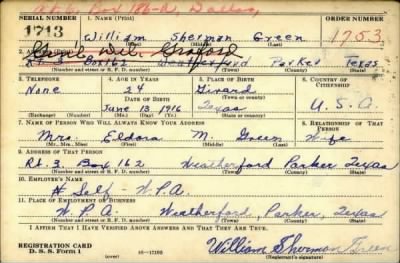 Box 186-A, Dallas,
SERIAL NUMBER 1. NAME (Print)
1713 William Sherman Green 1753
(First) (Middle) (Last)
2. ADDRESS (Print)
Rt. 3. Box 162 Weatherford Parker Texas
(Number and street or R. F. D. number) (Town) (County) (State)
3. TELEPHONE 4. AGE IN YEARS 5. PLACE OF BIRTH 6. COUNTRY OF CITIZENSHIP
None 24 Girard
DATE OF BIRTH (Town or county)
June 13 1916 Texas U.S.A.
(Exchange) (Number) (Mo.) (Day) (Yr.) (State or country)
7. NAME OF PERSON WHO WILL ALWAYS KNOW YOUR ADDRESS 8. RELATIONSHIP OF THAT PERSON
Mrs. Eldora M. Green Wife
(Mr., Mrs., Miss) (First) (Middle) (Last)
9. ADDRESS OF THAT PERSON
Rt. 3. Box 162 Weatherford Parker Texas
(Number and street or R. F. D. number) (Town) (County) (State)
10. EMPLOYER'S NAME
Self - W.P.A.
11. PLACE OF EMPLOYMENT OR BUSINESS
W.P.A. Weatherford, Parker, Texas
(Number and street or R. F. D. number) (Town) (County) (State)
I AFFIRM THAT I HAVE VERIFIED ABOVE ANSWERS AND THAT THEY ARE TRUE.
REGISTRATION CARD
D. S. S. Form 1 (over) William Sherman Green
(Registrant's signature)